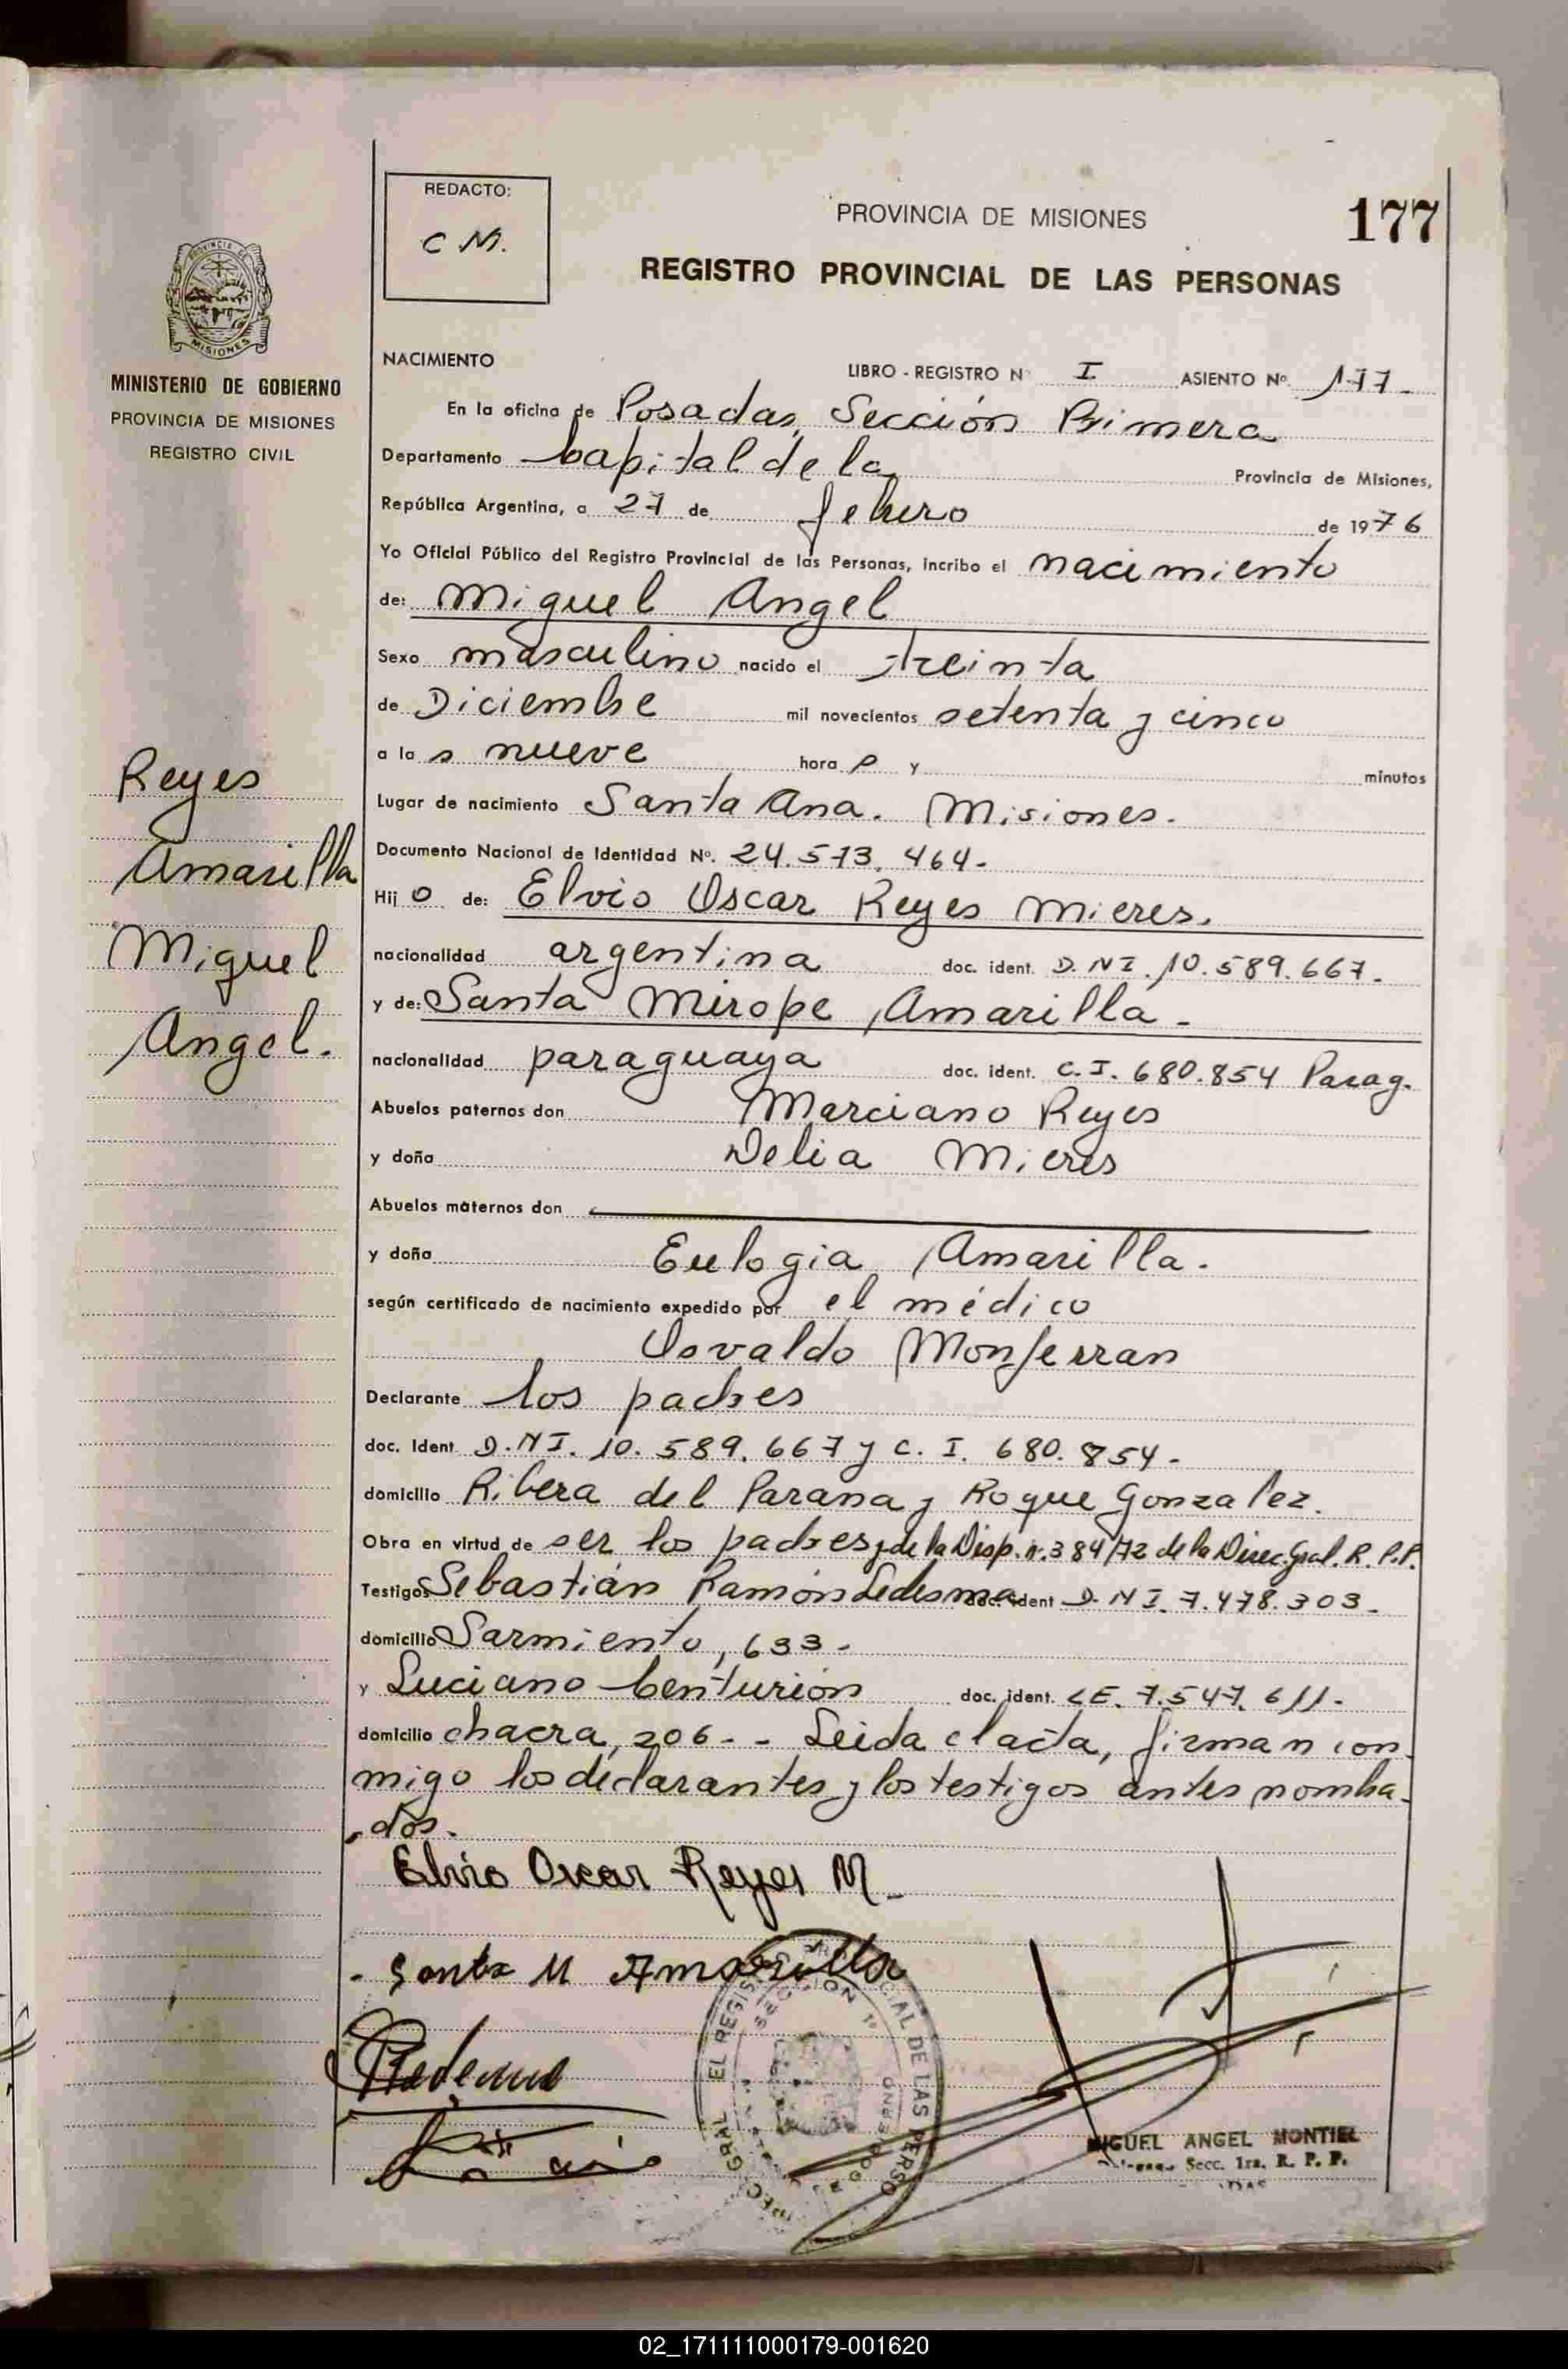 REDACTO:
C M.
PROVINCIA DE MISIONES
177
REGISTRO PROVINCIAL DE LAS PERSONAS
MISIONES
MINISTERIO DE GOBIERNO
PROVINCIA DE MISIONES
REGISTRO CIVIL
Reyes
Amarilla
Miguel
Angel.
NACIMIENTO LIBRO - REGISTRO N I ASIENTO Nº. 177-
En la oficina de Posadas, Sección Primera
Departamento Capital de la Provincia de Misiones,
República Argentina, a 27 de febrero de 1976
Yo Oficial Público del Registro Provincial de las Personas, incribo el nacimiento
de: Miguel Angel
Sexo masculino nacido el treinta
de Diciembre mil novecientos setenta y cinco
a la s nueve hora s y minutos
Lugar de nacimiento Santa Ana. Misiones.
Documento Nacional de Identidad Nº. 24.573.464-
Hij o de: Elvio Oscar Reyes Mieres.
nacionalidad argentina doc. ident. D.N I. 10.589.667.
y de: Santa Mirope Amarilla-
nacionalidad paraguaya doc. ident. C.I. 680.854 Parag.
Abuelos paternos don Marciano Reyes
y doña Delia Mieres
Abuelos maternos don
y doña Eulogia Amarilla.
según certificado de nacimiento expedido por el médico
Osvaldo Monferran
Declarante los padres
doc. Ident D.N I. 10. 589. 667 y C. I. 680. 854-
domicilio Ribera del Parana y Roque Gonzalez.
Obra en virtud de ser los padres y de la Disp. n. 384/72 de la Direc. Gral. R. P. P.
Testigos Sebastián Ramón Ledesma doc. ident D. N I. 7.478.303-
domicilio Sarmiento, 633-
y Luciano Centurión doc. ident. L E. 7.547.611-
domicilio chacra, 206- - Leida el acta, firman con
migo los declarantes y los testigos antes nombra-
dos.
Elvio Oscar Reyes M.
Santa M Amarilla
MIGUEL ANGEL MONTIEL
Secc. 1ra. R. P. P.
02_171111000179-001620